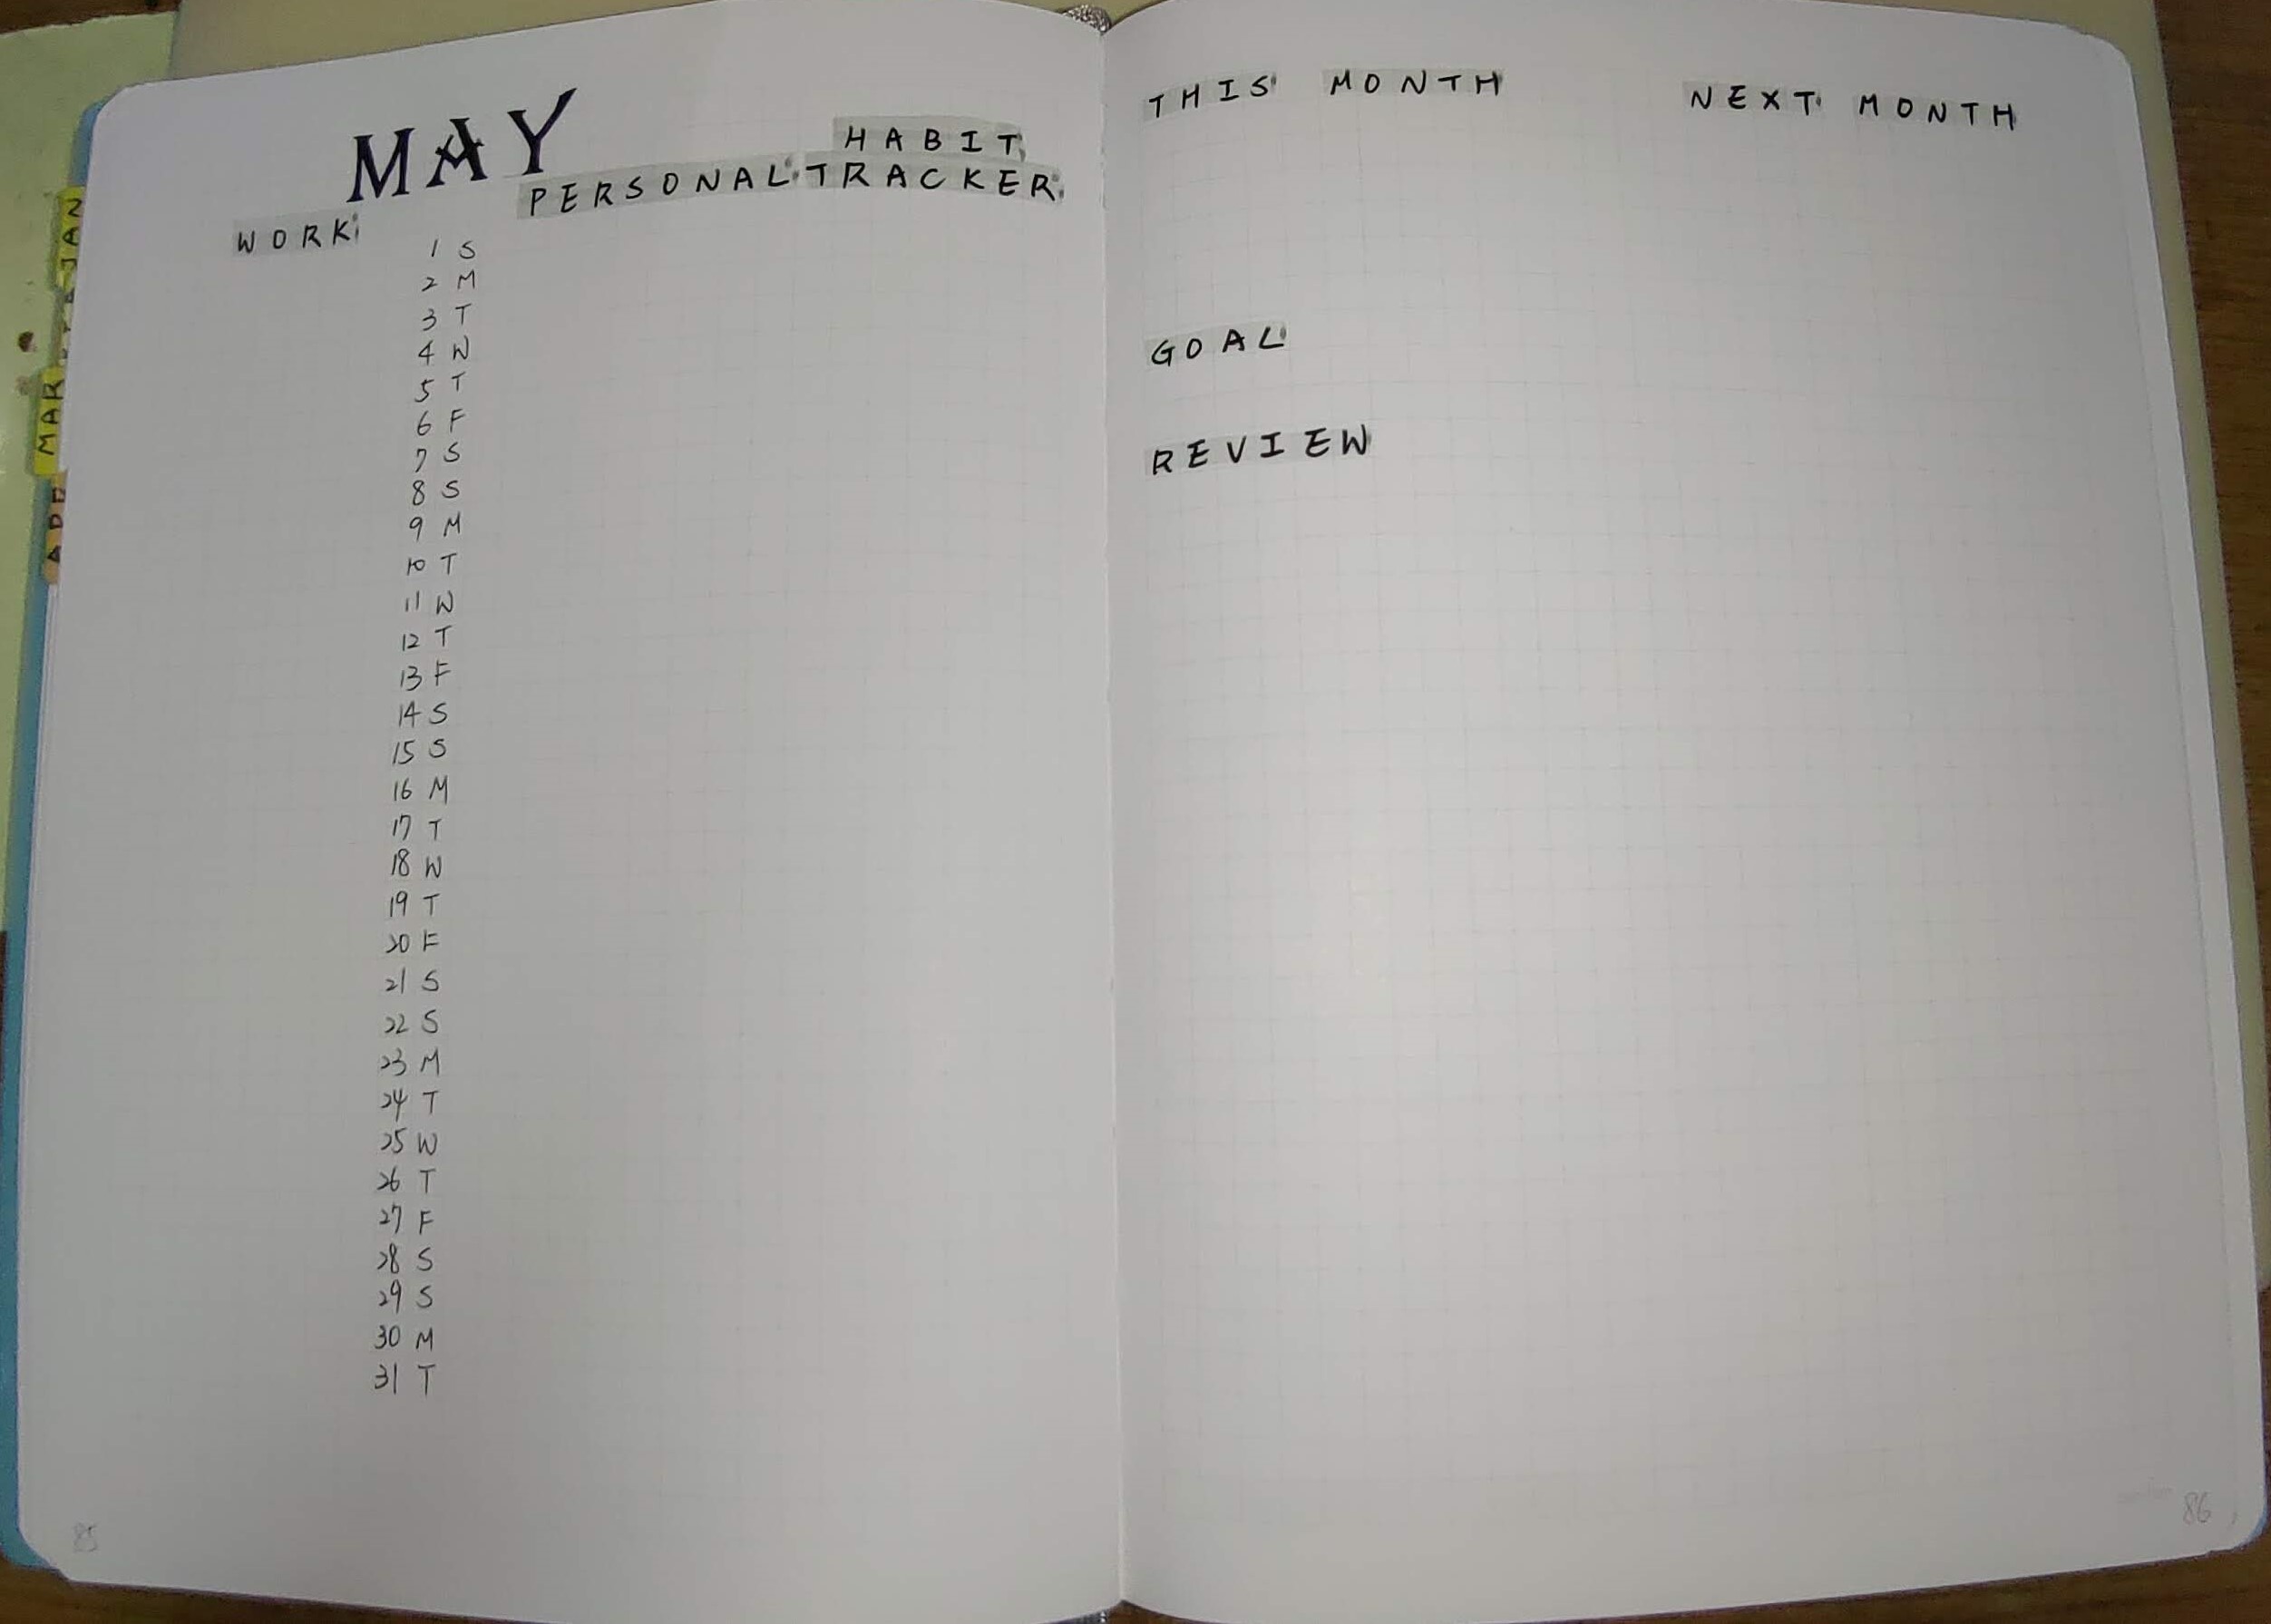 MAY
HABIT
PERSONAL TRACKER
WORK
1 S
2 M
3 T
4 W
5 T
6 F
7 S
8 S
9 M
10 T
11 W
12 T
13 F
14 S
15 S
16 M
17 T
18 W
19 T
20 F
21 S
22 S
23 M
24 T
25 W
26 T
27 F
28 S
29 S
30 M
31 T
85
THIS MONTH
NEXT MONTH
GOAL
REVIEW
86
JAN
MAR
APR